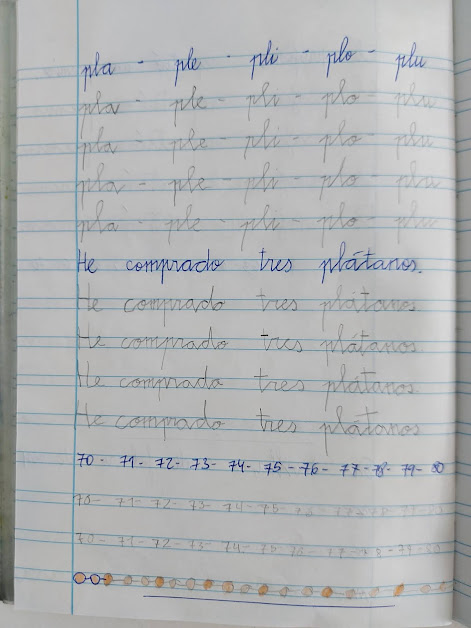 pla - ple - pli - plo - plu
pla - ple - pli - plo - plu
pla - ple - pli - plo - plu
pla - ple - pli - plo - plu
pla - ple - pli - plo - plu
He comprado tres plátanos.
He comprado tres plátanos
He comprado tres plátanos
He comprado tres plátanos
He comprado tres plátanos
70 - 71 - 72 - 73 - 74 - 75 - 76 - 77 - 78 - 79 - 80
70 - 71 - 72 - 73 - 74 - 75 - 76 - 77 - 78 - 79 - 80
70 - 71 - 72 - 73 - 74 - 75 - 76 - 77 - 78 - 79 - 80